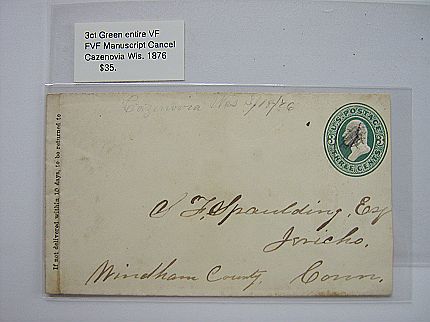 3ct Green entire VF
FVF Manuscript Cancel
Cazenovia Wis. 1876
$35.
Cazenovia Wis 5/18/76
U.S. POSTAGE
THREE CENTS
If not delivered within 10 days, to be returned to
J F. Spaulding, Esq
Jericho.
Windham County, Conn.